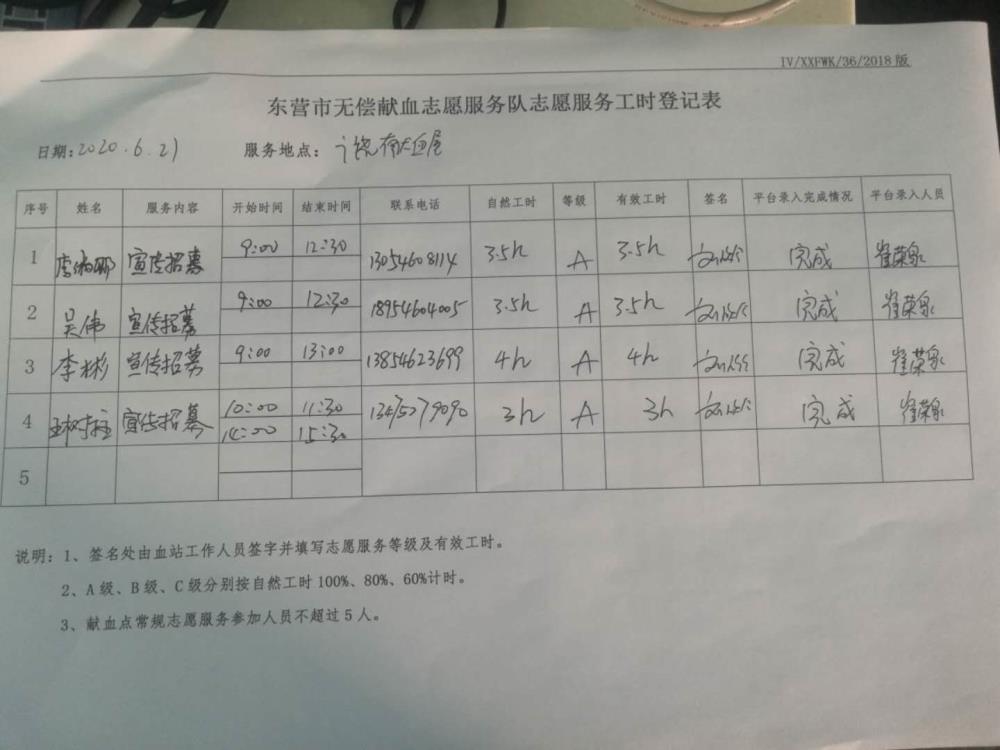 IV/XXFWK/36/2018版
东营市无偿献血志愿服务队志愿服务工时登记表
日期:2020.6.21 服务地点:广饶献血屋
序号 姓名 服务内容 开始时间 结束时间 联系电话 自然工时 等级 有效工时 签名 平台录入完成情况 平台录入人员
1 宣传招募 9:00 12:30 13054608114 3.5h A 3.5h 完成 崔荣泉
2 吴伟 宣传招募 9:00 12:30 18954604005 3.5h A 3.5h 完成 崔荣泉
3 李彬 宣传招募 9:00 13:00 13854623699 4h A 4h 完成 崔荣泉
4 王树柱 宣传招募 10:00 11:30 13475279090 3h A 3h 完成 崔荣泉
14:00 15:30
5
说明:1、签名处由血站工作人员签字并填写志愿服务等级及有效工时。
2、A级、B级、C级分别按自然工时100%、80%、60%计时。
3、献血点常规志愿服务参加人员不超过5人。